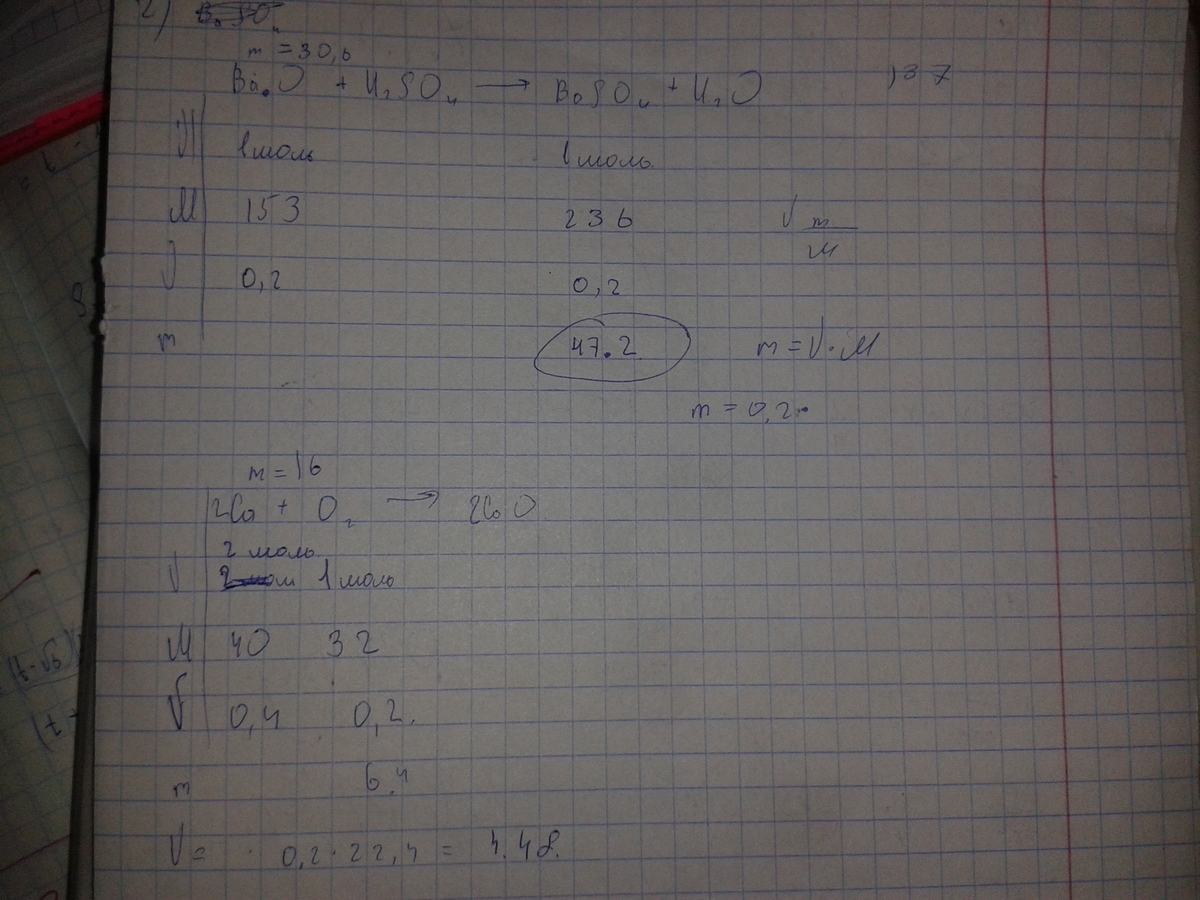 2)
m = 30,6
BaO + H₂SO₄ → BaSO₄ + H₂O 137
1 моль 1 моль
M 153 236 ν m/M
ν 0,2 0,2
m 47.2 m = ν · M
m = 0,2·
m = 16
2Ca + O₂ → 2CaO
2 моль
ν 1 моль
M 40 32
ν 0,4 0,2.
m 6.4
V = 0,2 · 22,4 = 4.48.